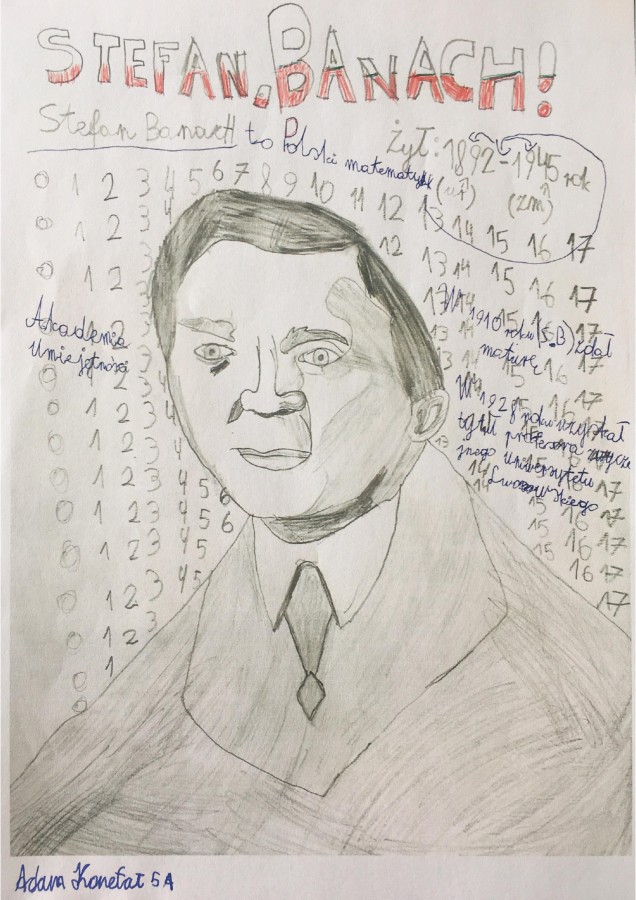 STEFAN.BANACH!
Stefan Banach to Polski matematyk
żył: 1892-1945 rok
(ur) (zm)
0 1 2 3 4 5 6 7 8 9 10 11 12 13 14 15 16 17
0 1 2 3 4 12 13 14 15 16 17
0 1 2 3 13 14 15 16 17
Akademia
Umiejętności
W 1910
roku (S.B) zdał
maturę
W 1928 roku uzyskał
tytuł profesora zwycza
jnego uniwersytetu
Lwowskiego
0 1 2 3 4
0 1 2 3 4
0 1 2 3 4 5 6
0 1 2 3 4 5 6
0 1 2 3 4 5
0 1 2 3 4 5
0 1 2 3
0 1
0
Adam 5A